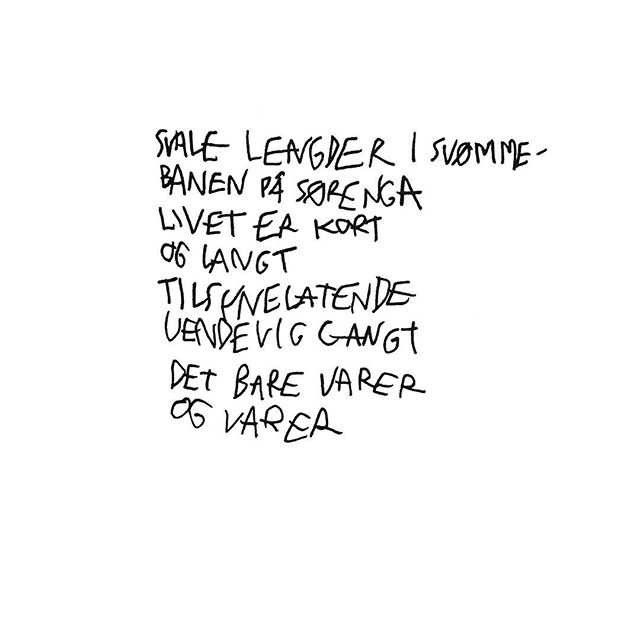 SVALE LENGDER I SVØMME-
BANEN PÅ SØRENGA
LIVET ER KORT
OG LANGT
TILSYNELATENDE
UENDELIG GANGT
DET BARE VARER
OG VARER